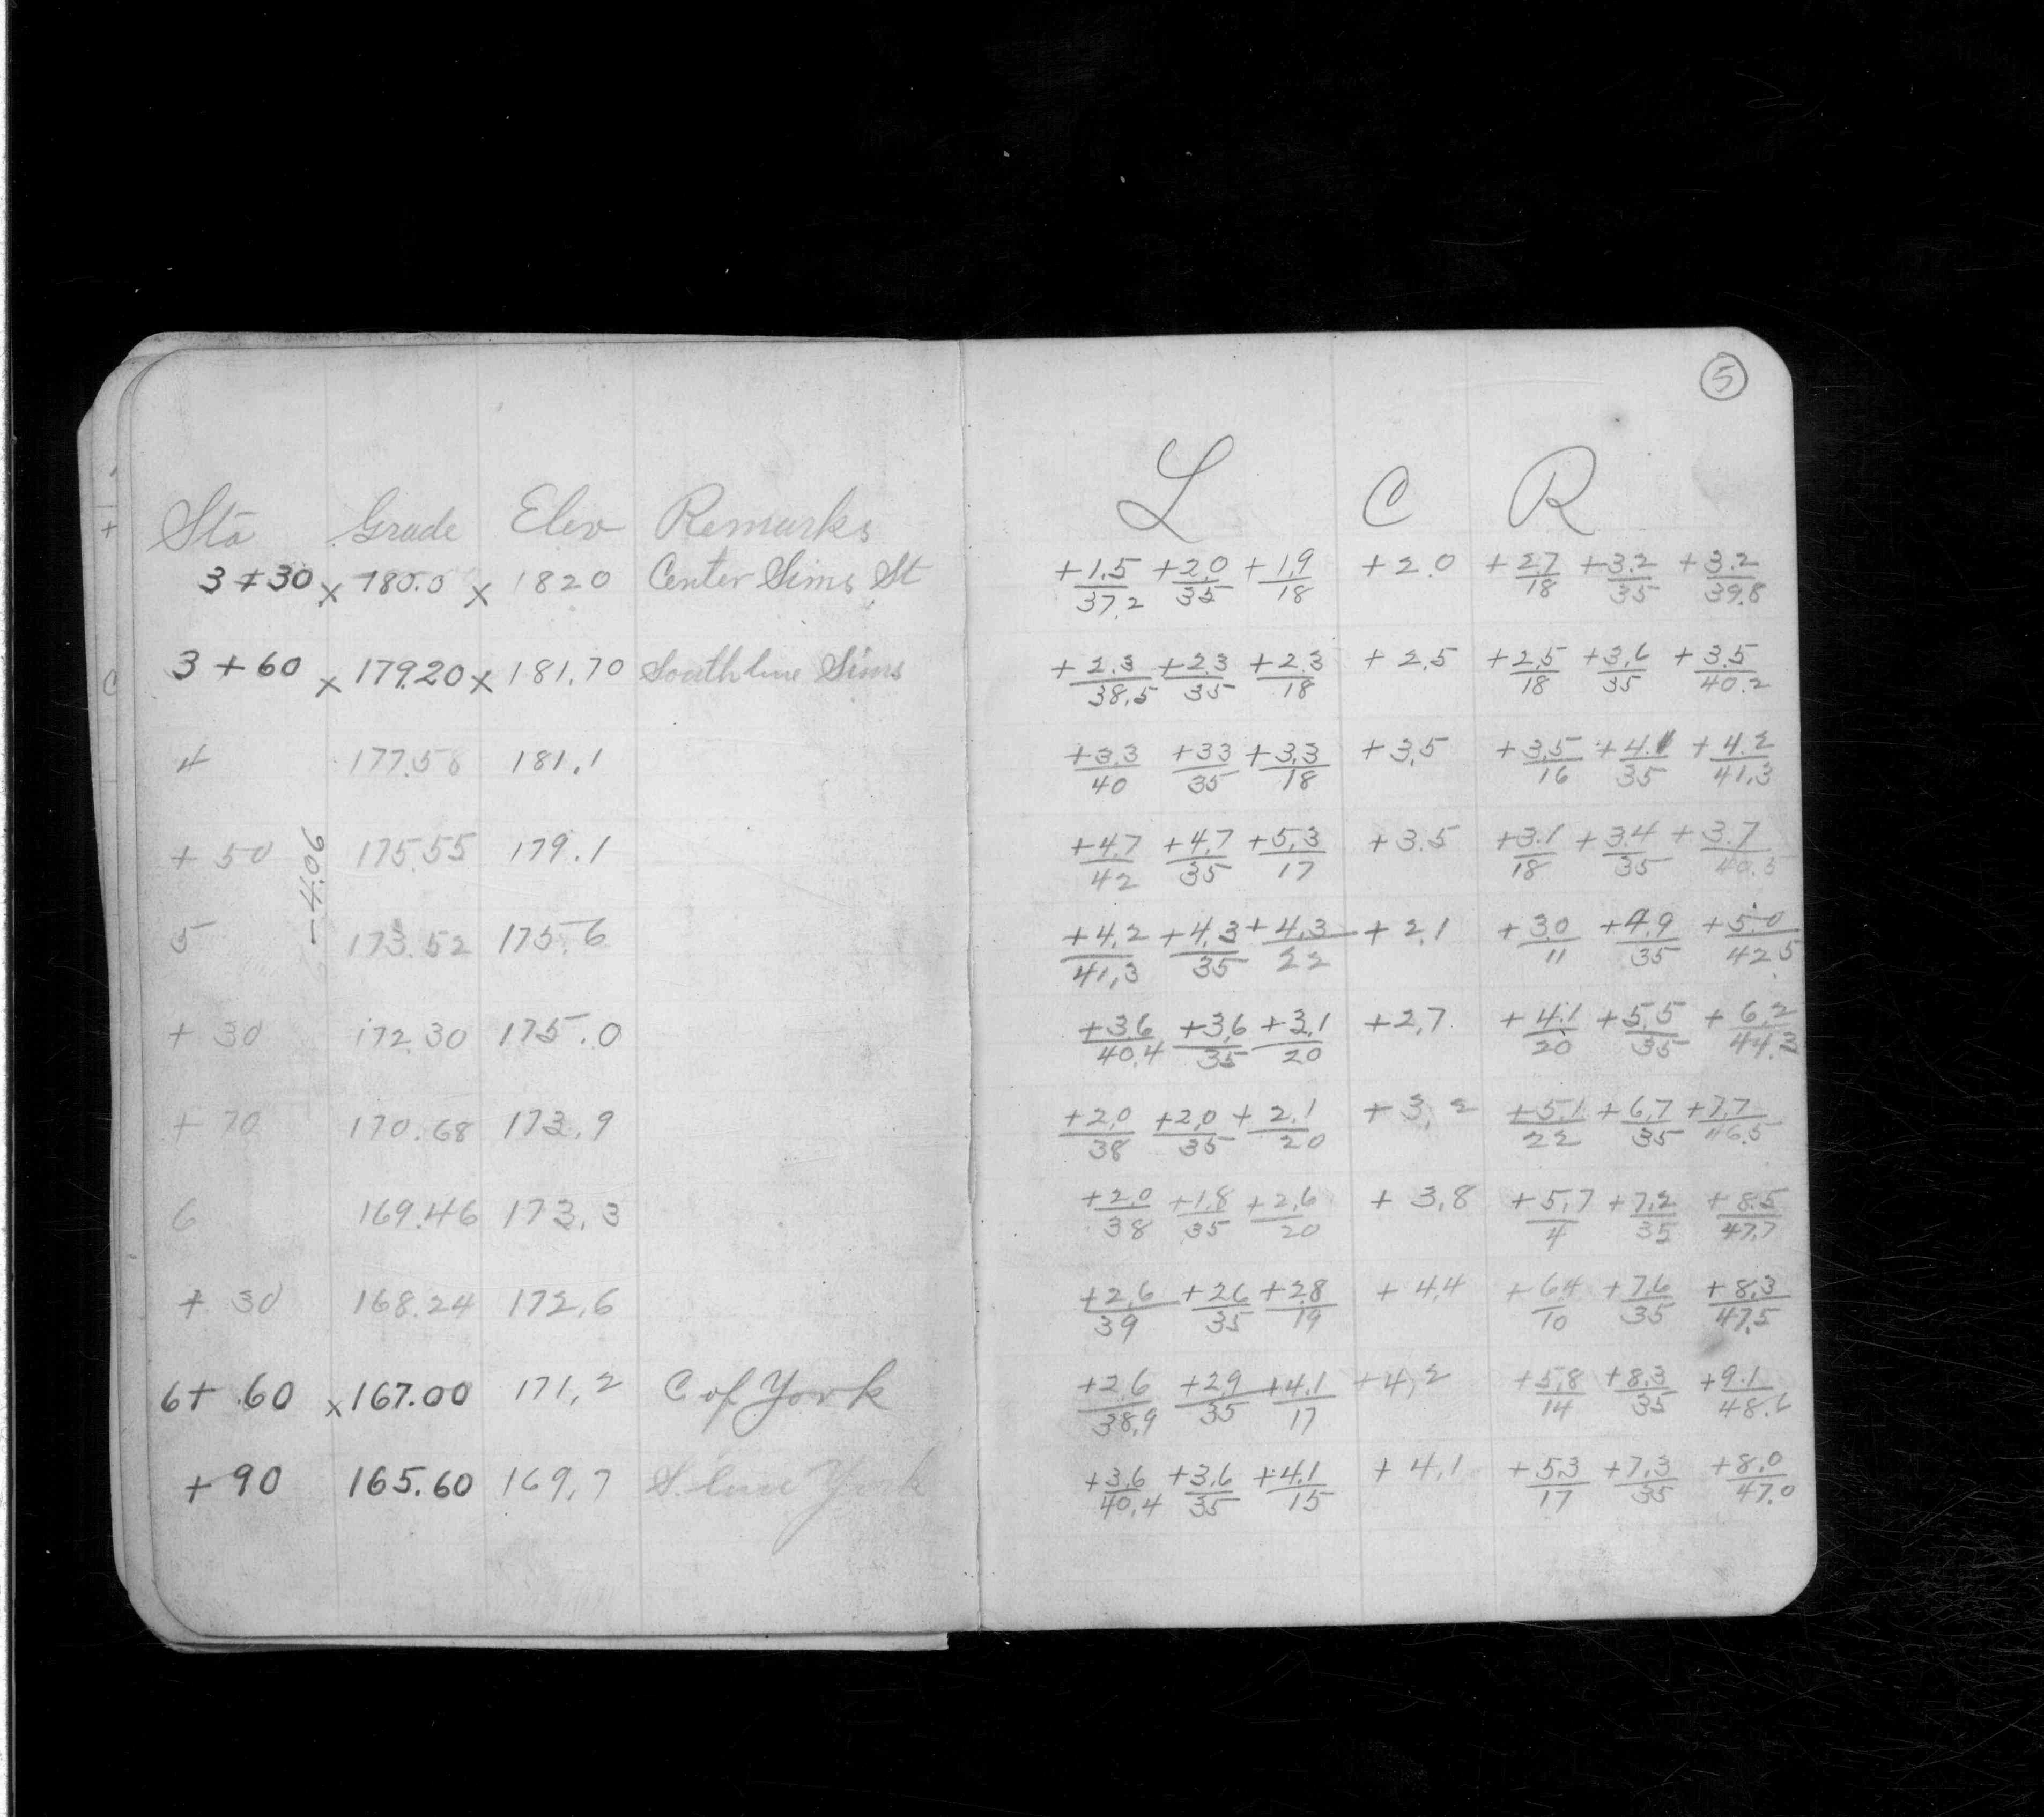 5
Sta Grade Elev Remarks L C R
3+30 x 180.0 x 182.0 Center Sims St +1.5/37.2 +2.0/35 +1.9/18 +2.0 +2.7/18 +3.2/35 +3.2/39.8
3+60 x 179.20 x 181.70 South line Sims +2.3/38.5 +2.3/35 +2.3/18 +2.5 +2.5/18 +3.6/35 +3.5/40.2
4 177.58 181.1 +3.3/40 +3.3/35 +3.3/18 +3.5 +3.5/16 +4.1/35 +4.2/41.3
+50 175.55 179.1 +4.7/42 +4.7/35 +5.3/17 +3.5 +3.1/18 +3.4/35 +3.7/40.5
-4.06
5 173.52 175.6 +4.2/41.3 +4.3/35 +4.3/22 +2.1 +3.0/11 +4.9/35 +5.0/42.5
+30 172.30 175.0 +3.6/40.4 +3.6/35 +3.1/20 +2.7 +4.1/20 +5.5/35 +6.2/44.3
+70 170.68 173.9 +2.0/38 +2.0/35 +2.1/20 +3.2 +5.1/22 +6.7/35 +7.7/46.5
6 169.46 173.3 +2.0/38 +1.8/35 +2.6/20 +3.8 +5.7/4 +7.2/35 +8.5/47.7
+30 168.24 172.6 +2.6/39 +2.6/35 +2.8/19 +4.4 +6.4/10 +7.6/35 +8.3/47.5
6+60 x 167.00 171.2 C of York +2.6/38.9 +2.9/35 +4.1/17 +4.2 +5.8/14 +8.3/35 +9.1/48.6
+90 165.60 169.7 S. line York +3.6/40.4 +3.6/35 +4.1/15 +4.1 +5.3/17 +7.3/35 +8.0/47.0